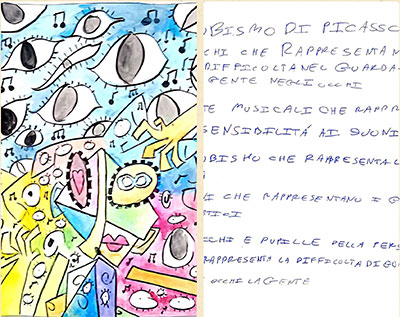 UBISMO DI PICASSO
CHI CHE RAPPRESENTAN
DIFFICOLTA NEL GUARDA
GENTE NEGLI OCCHI
TE MUSICALI CHE RAPPR
SENSIBILITÁ AI SUONI
UBISMO CHE RAPPRESENTA L
NI CHE RAPPRESENTANO I G
STICI
CCHI E PUPILLE DELLA PERS
RAPPRESENTA LA DIFFICOLTA DI GU
OCCHI LA GENTE